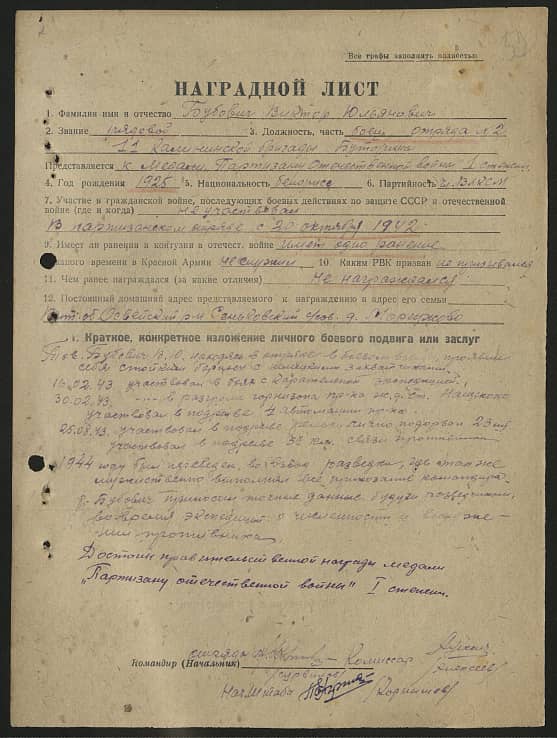 Все графы заполнять полностью
НАГРАДНОЙ ЛИСТ
1. Фамилия имя и отчество Бубович Виктор Юльянович
2. Звание рядовой 3. Должность, часть боец отряда №2
11 Калининской бригады Буторина
Представляется к Медали Партизану Отечественной войны I степени
4. Год рождения 1925 5. Национальность белорусс 6. Партийность чл. ВЛКСМ
7. Участие в гражданской войне, последующих боевых действиях по защите СССР и отечественной
войне (где и когда) Не участвовал
В партизанском отряде с 20 октября 1942
9. Имеет ли ранения и контузии в отечест. войне имеет одно ранение
времени в Красной Армии не служил 10. Каким РВК призван не призывался
11. Чем ранее награждался (за какие отличия) Не награждался
12. Постоянный домашний адрес представляемого к награждению и адрес его семьи
Вит. об Освейский р-н д.
I. Краткое, конкретное изложение личного боевого подвига или заслуг
Тов. Бубович В.Ю. находясь в отряде
себя стойким борцом с немецкими захватчиками.
16.02.43 участвовал в боях с карательной экспедицией.
30.02.43. в разгроме гарнизона пр-ка ж.д. ст. Нащекино
участвовал в подрыве 4 автомашин пр-ка.
25.08.43. участвовал в подрыве рельс лично подорвал 23 шт
участвовал в подрыве связи противника
1944 году был переведен во взвод разведки, где также
мужественно выполнял все приказания командира.
Бубович приносил точные данные будучи разведчиком,
во время экспедиций о численности и вооруже-
нии противника.
Достоин правительственной награды медали
„Партизану отечественной войны" I степени.
Командир (Начальник) Комиссар
(Алексеев)
Нач. штаба